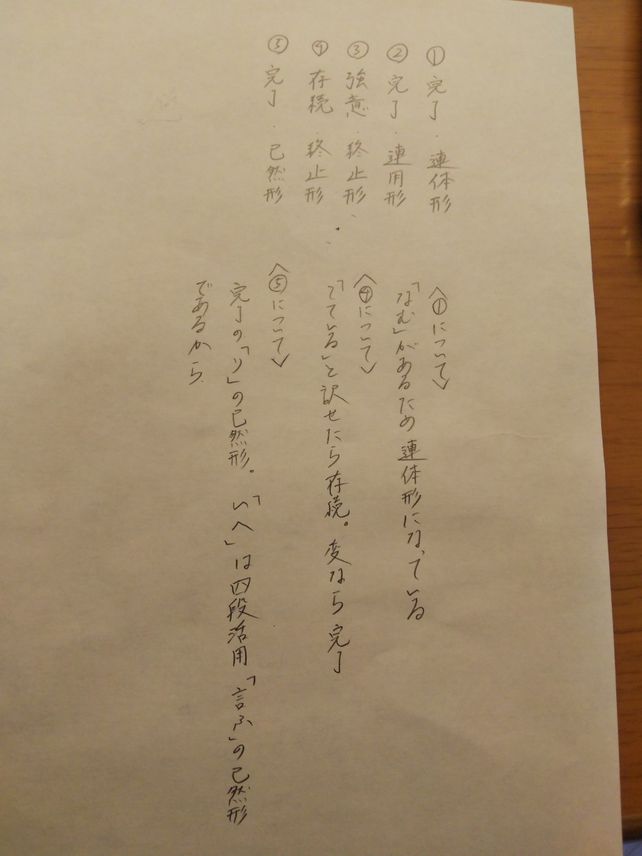 ① 完了・連体形
② 完了・連用形
③ 強意・終止形
④ 存続・終止形
⑤ 完了・已然形
〈①について〉
「なむ」があるため連体形になっている
〈④について〉
「ている」と訳せたら存続。変なら完了
〈⑤について〉
完了の「り」の已然形。「いへ」は四段活用「言ふ」の已然形
であるから